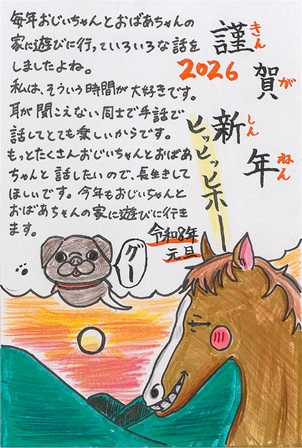 謹賀新年
きん が しん ねん
2026
毎年おじいちゃんとおばあちゃんの
家に遊びに行っていろいろな話を
しましたよね。
私は、そういう時間が大好きです。
耳が聞こえない同士で手話で
話してとても楽しいからです。
もっとたくさんおじいちゃんとおばあ
ちゃんと話したいので、長生きして
ほしいです。今年もおじいちゃんと
おばあちゃんの家に遊びに行き
ます。
ヒッヒッヒホー
グー
令和8年
元旦